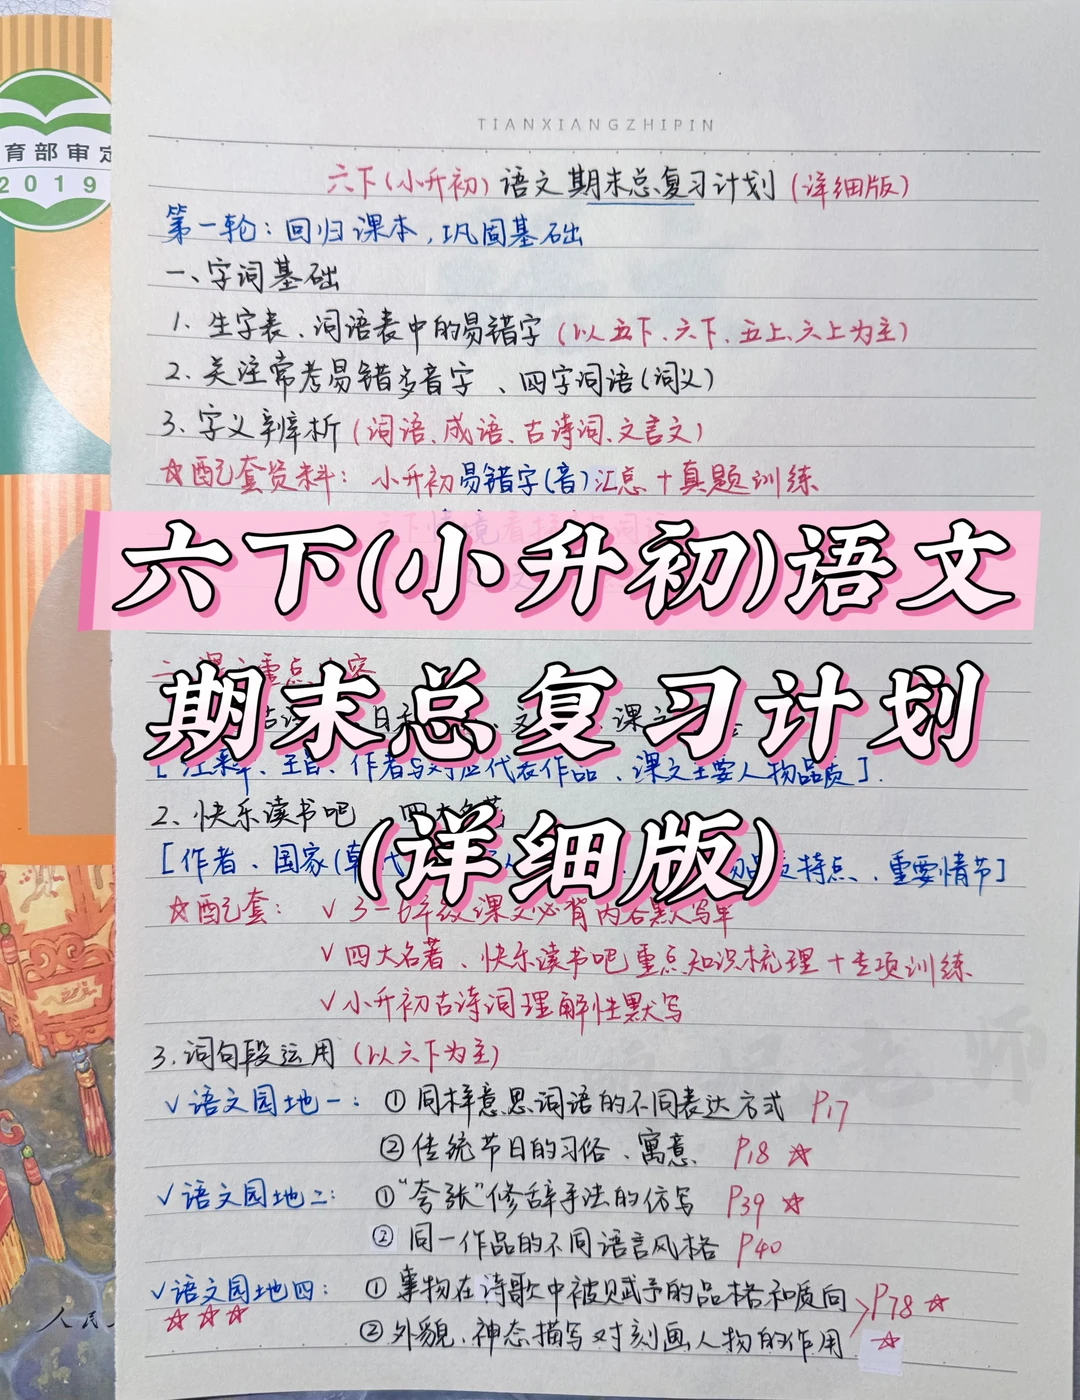 育部审定
2019
TIANXIANGZHIPIN
六下(小升初)语文期末总复习计划(详细版)
第一轮:回归课本,巩固基础
一、字词基础
1. 生字表、词语表中的易错字(以五下、六下、五上、六上为主)
2. 关注常考易错多音字、四字词语(词义)
3. 字义辨析(词语、成语、古诗词、文言文)
☆配套资料: 小升初易错字(音)汇总+真题训练
六下(小升初)语文
期末总复习计划
(详细版)
主旨、作者与对应代表作品、课文主要人物品质].
2. 快乐读书吧
[作者、国家(朝代 特点、重要情节]
☆配套: √3-6年级课文必背内容默写单
√四大名著、快乐读书吧重点知识梳理+专项训练
√小升初古诗词理解性默写
3. 词句段运用(以六下为主)
√语文园地一: ①同样意思词语的不同表达方式 P17
②传统节日的习俗、寓意 P18 ☆
√语文园地二: ①“夸张”修辞手法的仿写 P39 ☆
②同一作品的不同语言风格 P40
√语文园地四: ①事物在诗歌中被赋予的品格和质向 P78 ☆
☆☆☆ ②外貌、神态描写对刻画人物的作用 ☆
人民